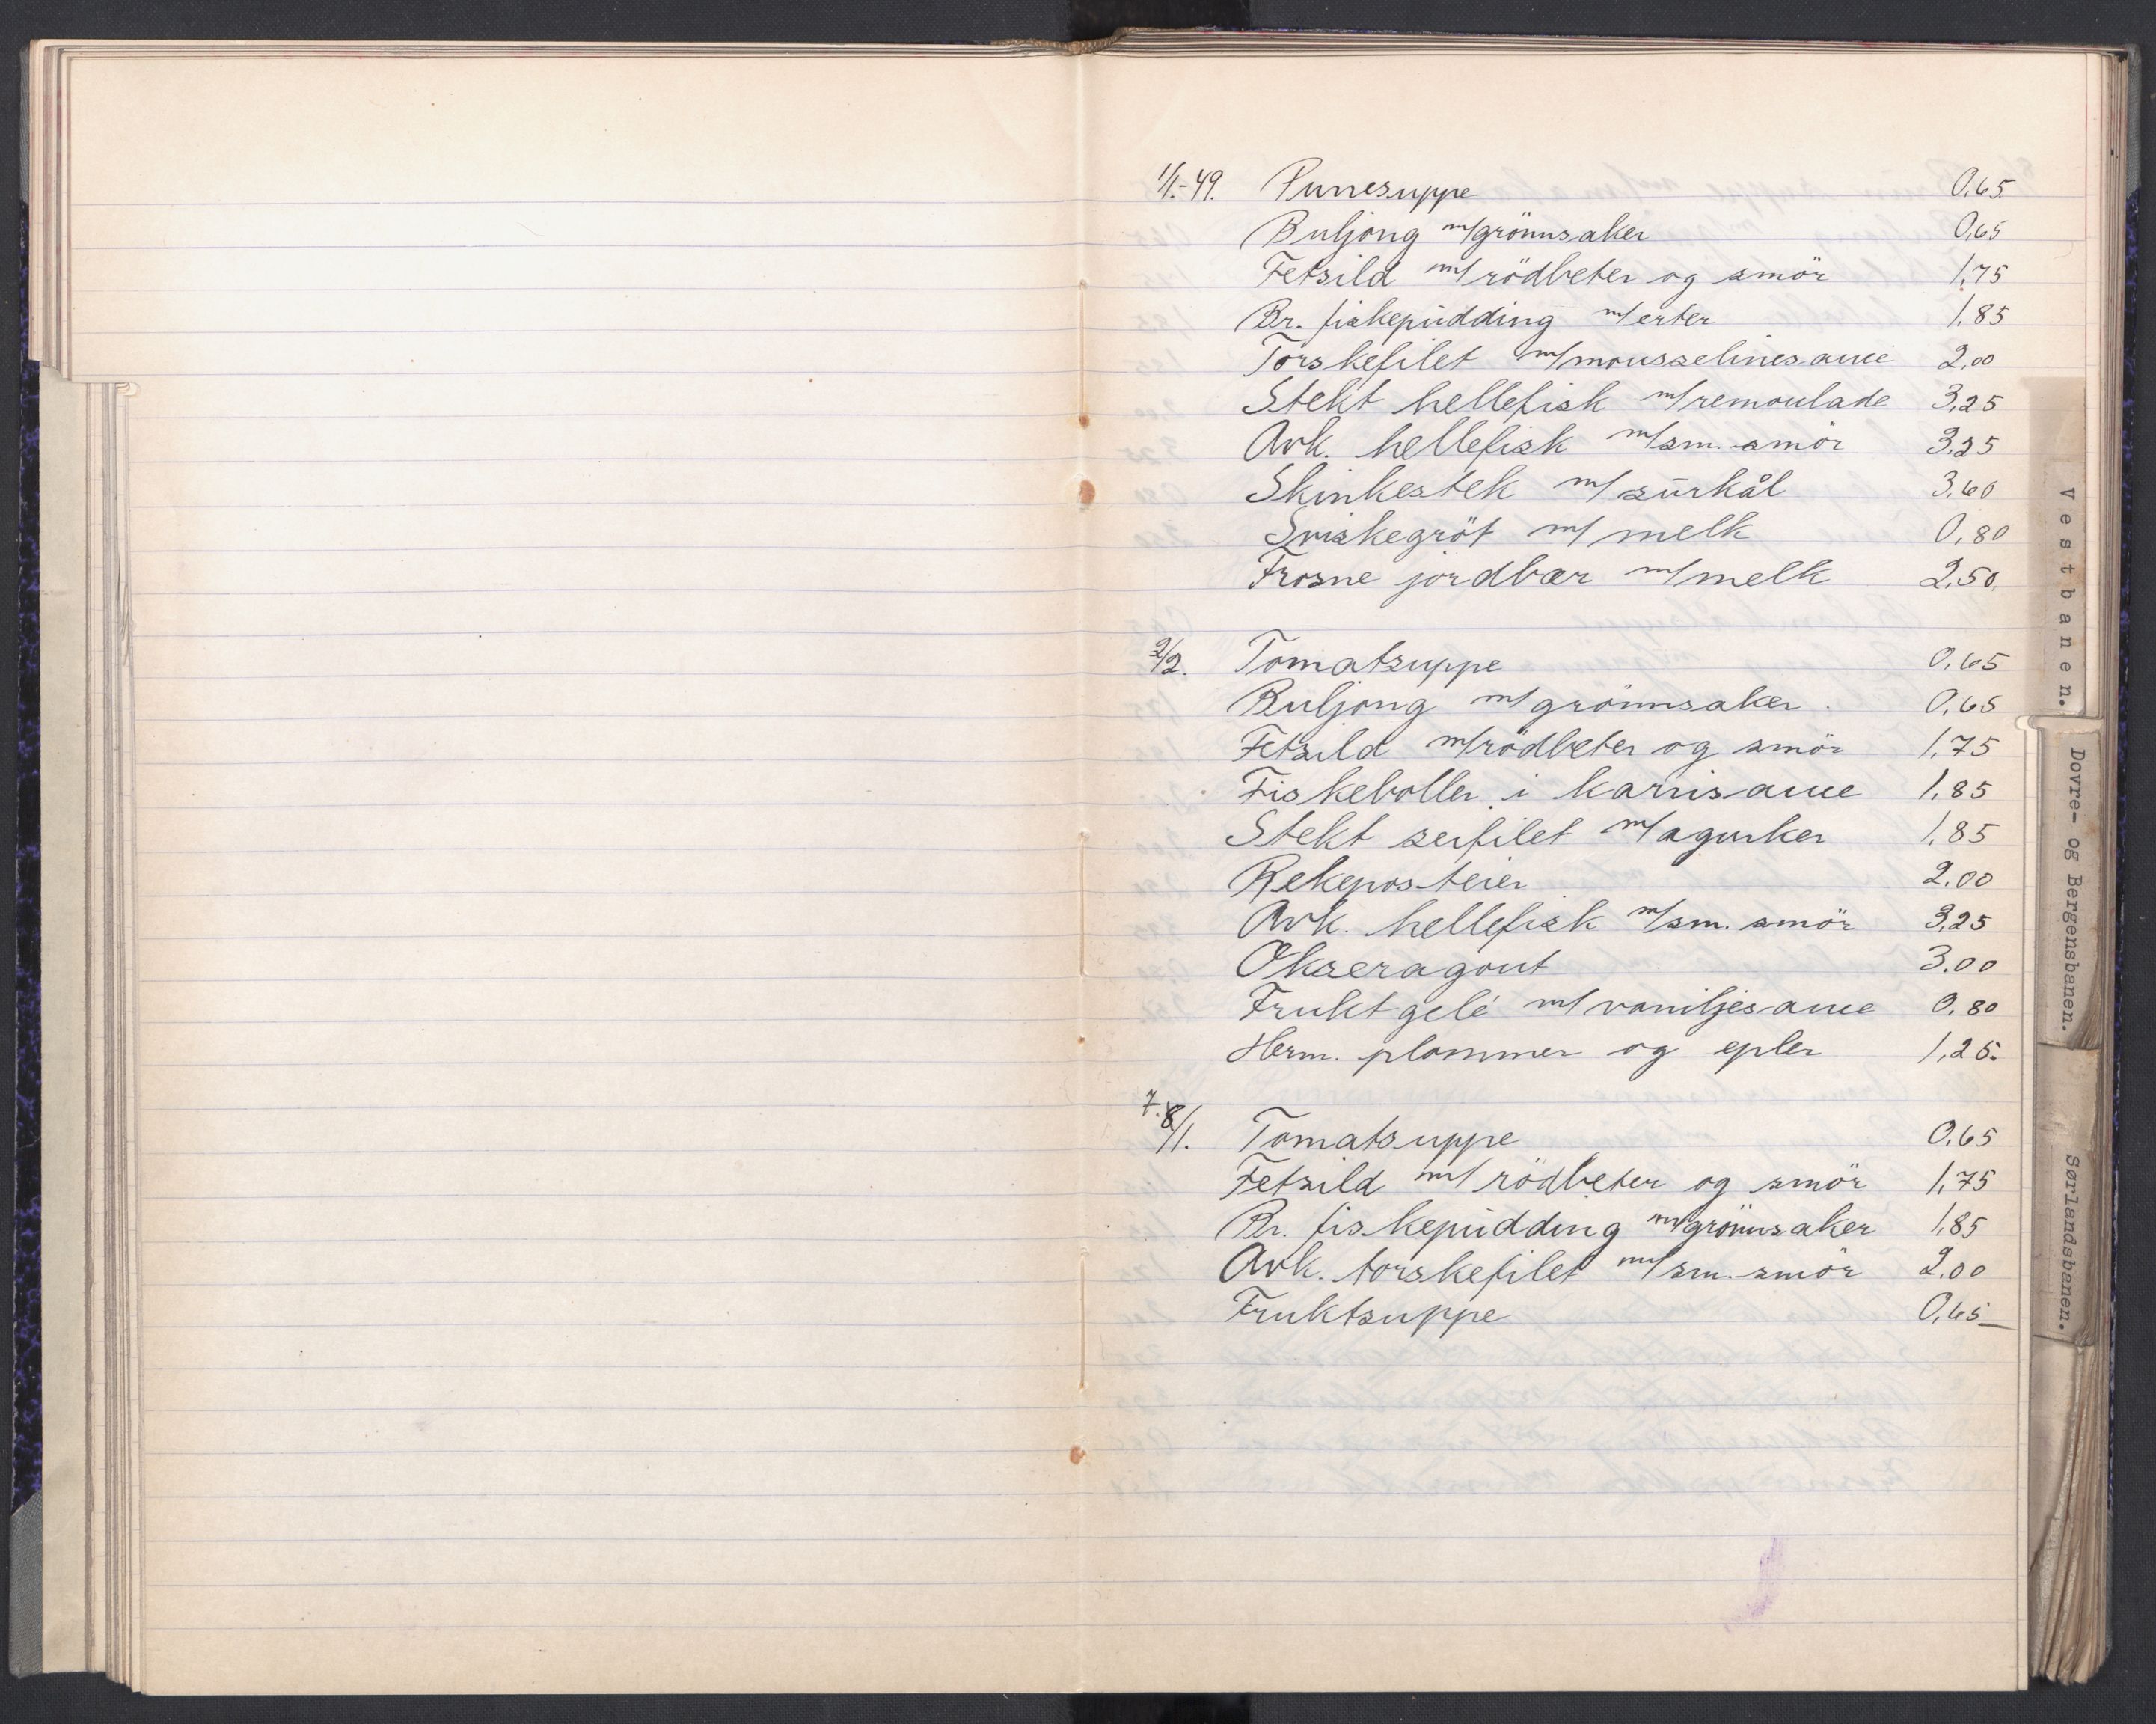 1/1.-49. Purresuppe 0,65
Buljong m/grönnsaker 0,65
Fetsild m/rödbeter og smör 1,75
Br. fiskepudding m/erter 1,85
Torskefilet m/mousselinesaue 2,00
Stekt hellefisk m/remoulade 3,25
Avk. hellefisk m/sm. smör 3,25
Skinkestek m/surkål 3,60
Sviskegröt m/melk 0,80
Frosne jordbær m/melk 2,50
2/2. Tomatsuppe 0,65
Buljong m/grönnsaker. 0,65
Fetsild m/rödbeter og smör 1,75
Fiskeboller i karrisaue 1.85
Stekt seifilet m/agurker 1,85
Rekeposteier 2.00
Avk. hellefisk m/sm. smör 3,25
Okseragout 3.00
Fruktgelé m/vaniljesaue 0,80
Herm. plommer og epler 1,25.
7.8/1. Tomatsuppe 0,65
Fetsild m/rödbeter og smör 1,75
Br. fiskepudding m/grönnsaker 1,85
Avk. torskefilet m/sm. smör 2.00
Fruktsuppe 0,65
Vestbanen.
Dovre- og Bergensbanen.
Sørlandsbanen.